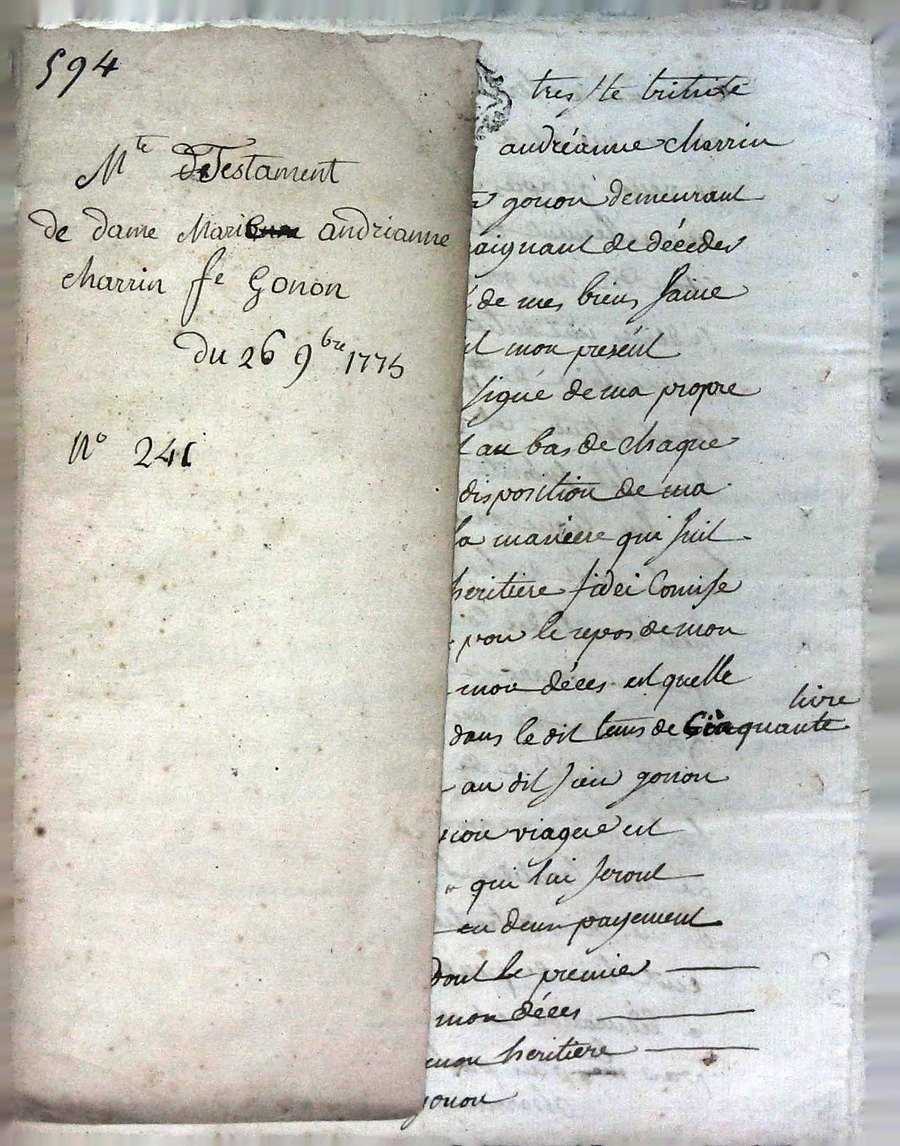 594
Mte de Testament
de dame Marie andrianne
charrin fe Gonon
du 26 9bre 1775
N° 241
tres Ste tritité
andréanne charrin
gonon demeurant
aignant de décedes
de mes biens faire
et mon présent
signé de ma propre
au bas de chaque
disposition de ma
la maniere qui suit
heritiere fidei Comise
pour le repos de mon
mon déces et quelle
livre
dans le dit tems de Cinquante
au dit sieur gonon
viagere et
qui lui seront
en deux payement
dont le premier
mon déces
mon heritiere
gonon